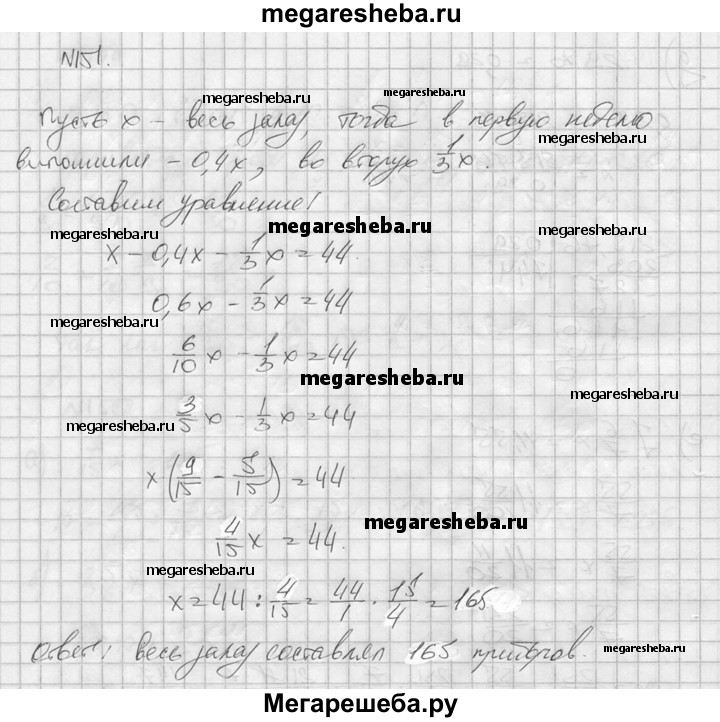 megaresheba.ru
№151.
megaresheba.ru megaresheba.ru
Пусть x – весь заказ, тогда в первую неделю
megaresheba.ru
выполнили – 0,4x, во вторую 1/3 x.
Составим уравнение!
megaresheba.ru megaresheba.ru megaresheba.ru
x – 0,4x – 1/3 x = 44.
0,6x – 1/3 x = 44
megaresheba.ru
6/10 x – 1/3 x = 44
megaresheba.ru
megaresheba.ru
3/5 x – 1/3 x = 44
megaresheba.ru
x (9/15 – 5/15) = 44
megaresheba.ru
4/15 x = 44.
megaresheba.ru
x = 44 : 4/15 = 44/1 · 15/4 = 165
Ответ: весь заказ составлял 165 приборов.
megaresheba.ru
Мегарешеба.ру